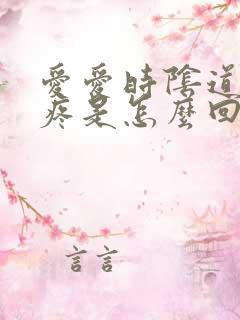 愛愛時陰道
疼是怎麼回
言言